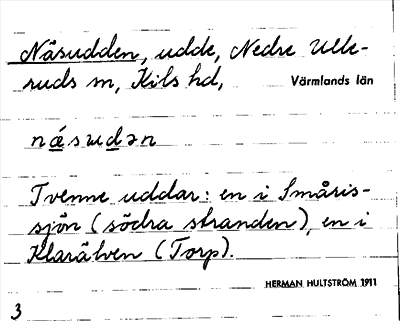 Näsudden, udde, Nedre Ulle-
ruds sn, Kils hd, Värmlands län
nǽsudən
Tvenne uddar: en i Småris-
sjön (södra stranden), en i
Klarälven (Torp).
HERMAN HULTSTRÖM 1911
3